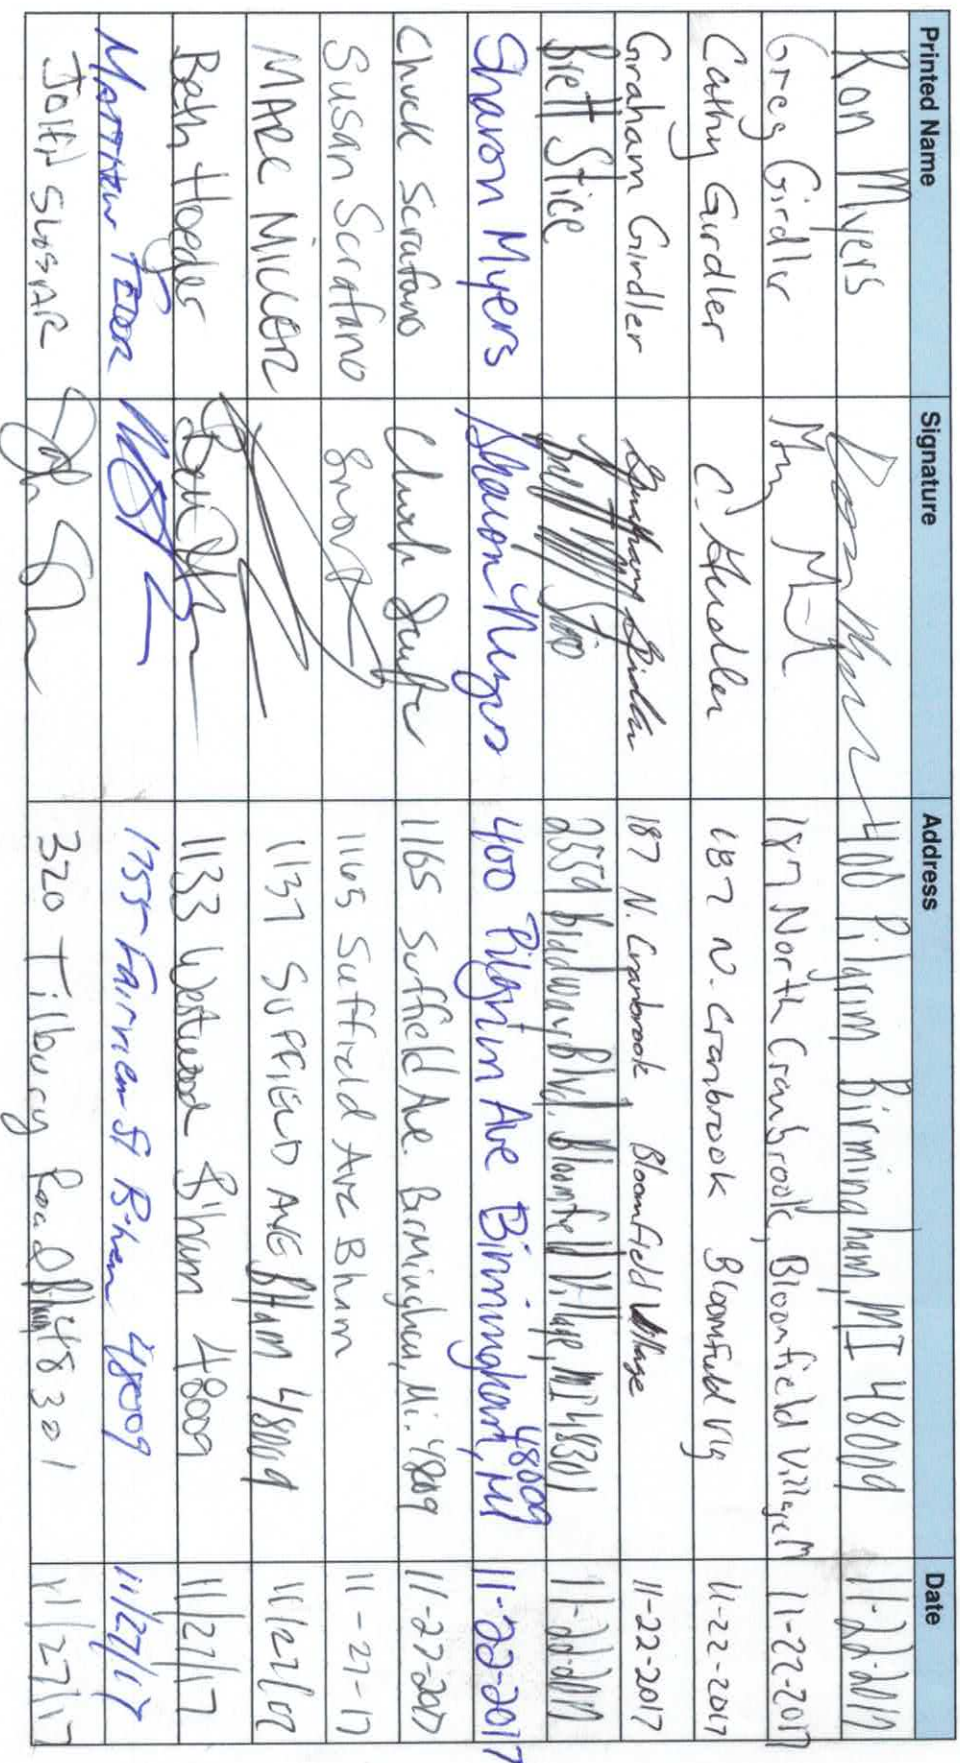 Printed Name Signature Address Date
Ron Myers 400 Pilgrim Birmingham, MI 48009 11-22-2017
Greg Girdler 187 North Cranbrook, Bloomfield Village M 11-22-2017
Cathy Girdler C Girdler 187 N. Cranbrook Bloomfield Vlg 11-22-2017
Graham Girdler Graham Girdler 187 N. Cranbrook Bloomfield Village 11-22-2017
Brett Stice 2359 Bloomfield Village, MI 48301 11-22-2017
Sharon Myers Sharon Myers 400 Pilgrim Ave Birmingham, MI 48009 11-22-2017
Chuck Scrafano 1165 Suffield Ave. Birmingham, Mi. 48009 11-27-2017
Susan Scrafano 1165 Suffield Ave Bham 11-27-17
MARC MILLER 1137 SUFFIELD AVE BHAM 48009 11/27/17
Beth Hoeger 1133 Westwood B'ham 48009 11/27/17
MATTHEW 1755 Fairview St B'ham 48009 11/27/17
JOHN SLOSAR 320 Tilbury Road Bham 48301 11/27/17